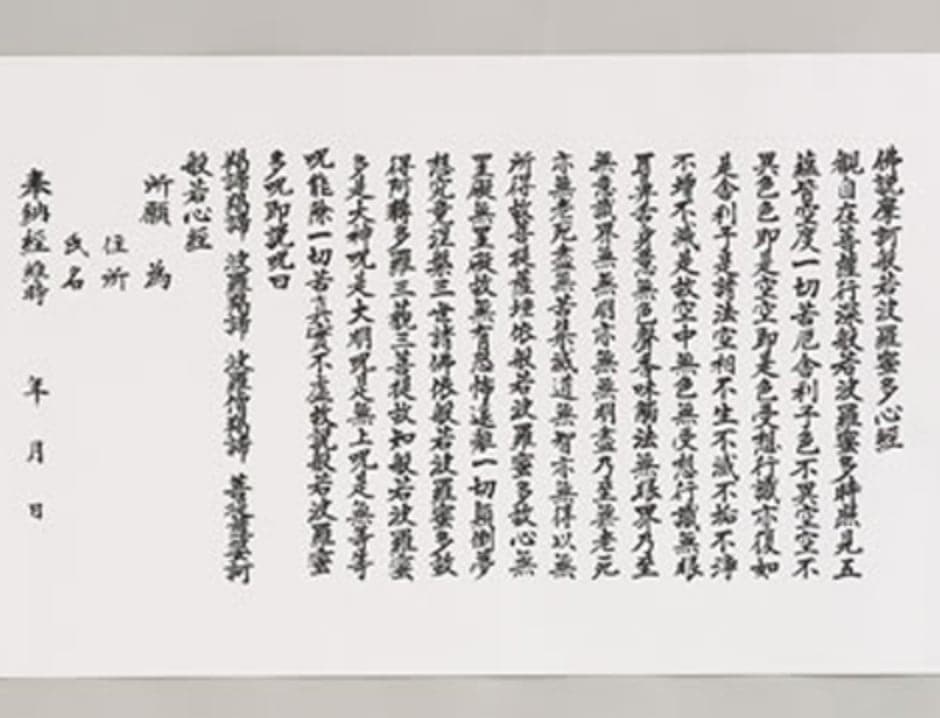 佛説摩訶般若波羅蜜多心經
観自在菩薩行深般若波羅蜜多時照見五
蘊皆空度一切苦厄舎利子色不異空空不
異色色即是空空即是色受想行識亦復如
是舎利子是諸法空相不生不滅不垢不浄
不増不減是故空中無色無受想行識無眼
耳鼻舌身意無色聲香味觸法無眼界乃至
無意識界無無明亦無無明盡乃至無老死
亦無老死盡無苦集滅道無智亦無得以無
所得故菩提薩埵依般若波羅蜜多故心無
罣礙無罣礙故無有恐怖遠離一切顛倒夢
想究竟涅槃三世諸佛依般若波羅蜜多故
得阿耨多羅三藐三菩提故知般若波羅蜜
多是大神呪是大明呪是無上呪是無等等
呪能除一切苦真實不虚故説般若波羅蜜
多呪即説呪曰
羯諦羯諦 波羅羯諦 波羅僧羯諦 菩提薩婆訶
般若心経
所願 為
住所
氏名
奉納經 時
年 月 日